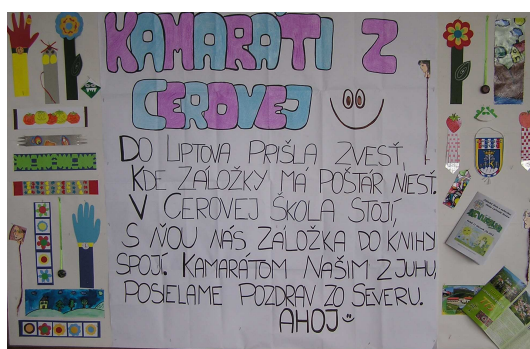 KAMARÁTI Z
CEROVEJ
DO LIPTOVA PRIŠLA ZVESŤ,
KDE ZÁLOŽKY MÁ POŠTÁR NIESŤ.
V CEROVEJ ŠKOLA STOJÍ,
S ŇOU NÁS ZÁLOŽKA DO KNIHY
SPOJÍ. KAMARÁTOM NAŠIM Z JUHU,
POSIELAME POZDRAV ZO SEVERU.
AHOJ